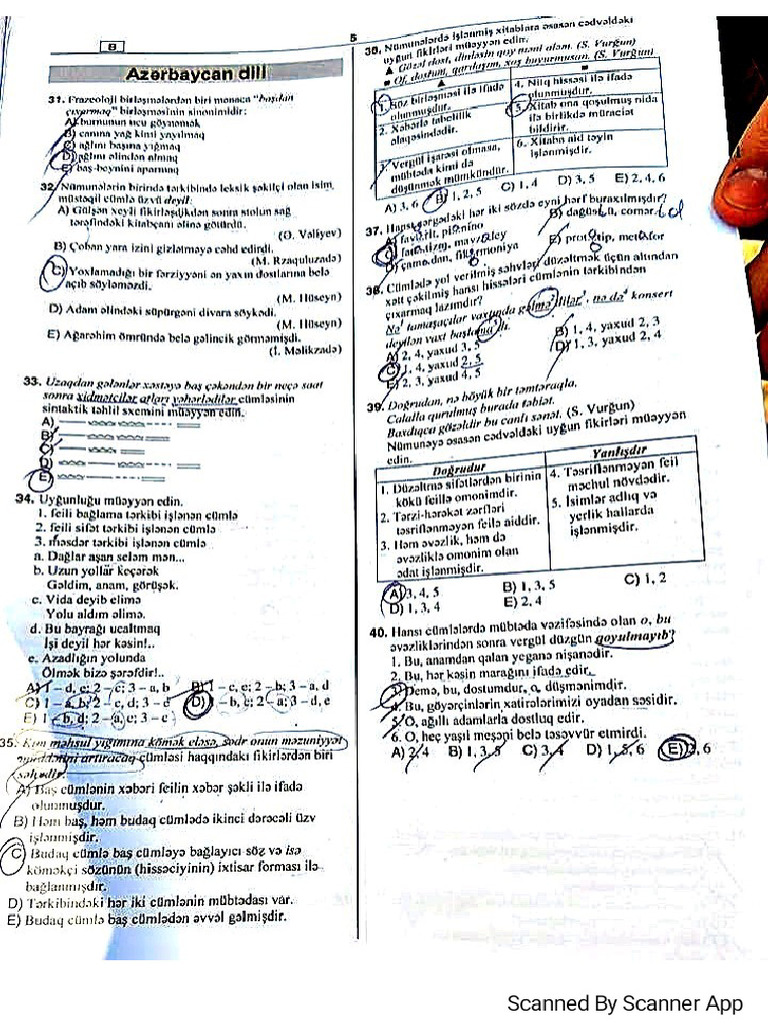 B
5
Azərbaycan dili
31. Frazeoloji birləşmələrdən biri mənaca "başdan
çıxarmaq" birləşməsinin sinonimidir:
A) burnunun ucu göynəmək
B) canına yağ kimi yayılmaq
C) ağlını başına yığmaq
D) ağlını əlindən almaq
E) baş-beynini aparmaq
32. Nümunələrin birində tərkibində leksik şəkilçi olan isim,
müstəqil cümlə üzvü deyil:
A) Gülşən xeyli fikirləşdikdən sonra stolun sağ
tərəfindəki kitabçanı əlinə götürdü.
(O. Vəliyev)
B) Çoban yara izini gizlətməyə cəhd edirdi.
(M. Rzaquluzadə)
C) Yoxlamadığı bir fərziyyəni ən yaxın dostlarına belə
açıb söyləməzdi.
(M. Hüseyn)
D) Adam əlindəki süpürgəni divara söykədi.
(M. Hüseyn)
E) Ağarəhim ömründə belə gəlincik görməmişdi.
(İ. Məlikzadə)
33. Uzaqdan gələnlər xəstəyə baş çəkəndən bir neçə saat
sonra xidmətçilər atları yəhərlədilər cümləsinin
sintaktik təhlil sxemini müəyyən edin.
A)
B)
C)
D)
E)
34. Uyğunluğu müəyyən edin.
1. feili bağlama tərkibi işlənən cümlə
2. feili sifət tərkibi işlənən cümlə
3. məsdər tərkibi işlənən cümlə
a. Dağlar aşan seləm mən...
b. Uzun yollar keçərək
Gəldim, anam, görüşək.
c. Vida deyib elimə
Yolu aldım əlimə.
d. Bu bayrağı ucaltmaq
İşi deyil hər kəsin!..
e. Azadlığın yolunda
Ölmək bizə şərəfdir!..
A) 1 – d, e; 2 – c; 3 – a, b
B) 1 – c, e; 2 – b; 3 – a, d
C) 1 – a, b; 2 – c, d; 3 – e
D) 1 – b, c; 2 – a; 3 – d, e
E) 1 – b, d; 2 – a, e; 3 – c
35. Kim məhsul yığımına kömək eləsə, sədr onun məzuniyyət
müddətini artıracaq cümləsi haqqındakı fikirlərdən biri
səhvdir.
A) Baş cümlənin xəbəri feilin xəbər şəkli ilə ifadə
olunmuşdur.
B) Həm baş, həm budaq cümlədə ikinci dərəcəli üzv
işlənmişdir.
C) Budaq cümlə baş cümləyə bağlayıcı söz və isə
köməkçi sözünün (hissəciyinin) ixtisar forması ilə
bağlanmışdır.
D) Tərkibindəki hər iki cümlənin mübtədası var.
E) Budaq cümlə baş cümlədən əvvəl gəlmişdir.
36. Nümunələrdə işlənmiş xitablara əsasən cədvəldəki
uyğun fikirləri müəyyən edin.
▲ Gözəl dost, dinləsin qoy məni aləm. (S. Vurğun)
■ Of, dostum, qardaşım, xoş buyurmusan. (S. Vurğun)
▲
■
1. Söz birləşməsi ilə ifadə
olunmuşdur.
2. Xəbərlə tabelilik
əlaqəsindədir.
3. Vergül işarəsi olmasa,
mübtəda kimi də
düşünmək mümkündür.
4. Nitq hissəsi ilə ifadə
olunmuşdur.
5. Xitab ona qoşulmuş nida
ilə birlikdə müraciət
bildirir.
6. Xitabın aid təyin
işlənmişdir.
A) 3, 6 B) 1, 2, 5 C) 1, 4 D) 3, 5 E) 2, 4, 6
37. Hansı sərgədəki hər iki sözdə eyni hərf buraxılmışdır?
38. Cümlədə yol verilmiş səhvləri düzəltmək üçün altından
xətt çəkilmiş hansı hissələri cümlənin tərkibindən
çıxarmaq lazımdır?
A) 2, 4, yaxud 3, 5
B) 1, 4, yaxud 2, 3
C) 1, 4, yaxud 2, 5
D) 1, 3, yaxud 2, 4
E) 2, 3, yaxud 4, 5
39. Doğrudan, nə böyük bir təmtəraqla,
Cəlalla qurulmuş burada təbiət.
Baxdıqca gözəldir bu canlı sənət. (S. Vurğun)
Nümunəyə əsasən cədvəldəki uyğun fikirləri müəyyən
edin.
Doğrudur
Yanlışdır
1. Düzəltmə sifətlərdən birinin
kökü feillə omonimdir.
2. Tərzi-hərəkət zərfləri
təsriflənməyən feilə aiddir.
3. Həm əvəzlik, həm də
əvəzliklə omonim olan
ədat işlənmişdir.
4. Təsriflənməyən feil
məchul növdədir.
5. İsimlər adlıq və
yerlik hallarda
işlənmişdir.
A) 3, 4, 5 B) 1, 3, 5 C) 1, 2
D) 1, 3, 4 E) 2, 4
40. Hansı cümlələrdə mübtəda vəzifəsində olan o, bu
əvəzliklərindən sonra vergül düzgün qoyulmayıb?
1. Bu, anamdan qalan yeganə nişanədir.
2. Bu, hər kəsin marağını ifadə edir.
3. Demə, bu, dostumdur, o, düşmənimdir.
4. Bu, göyərçinlərin xatirələrimizi oyadan səsidir.
5. O, ağıllı adamlarla dostluq edir.
6. O, heç yaşıl meşəni belə təsəvvür etmirdi.
A) 2, 4 B) 1, 3, 5 C) 3, 4 D) 1, 5, 6 E) 3, 6
Scanned By Scanner App